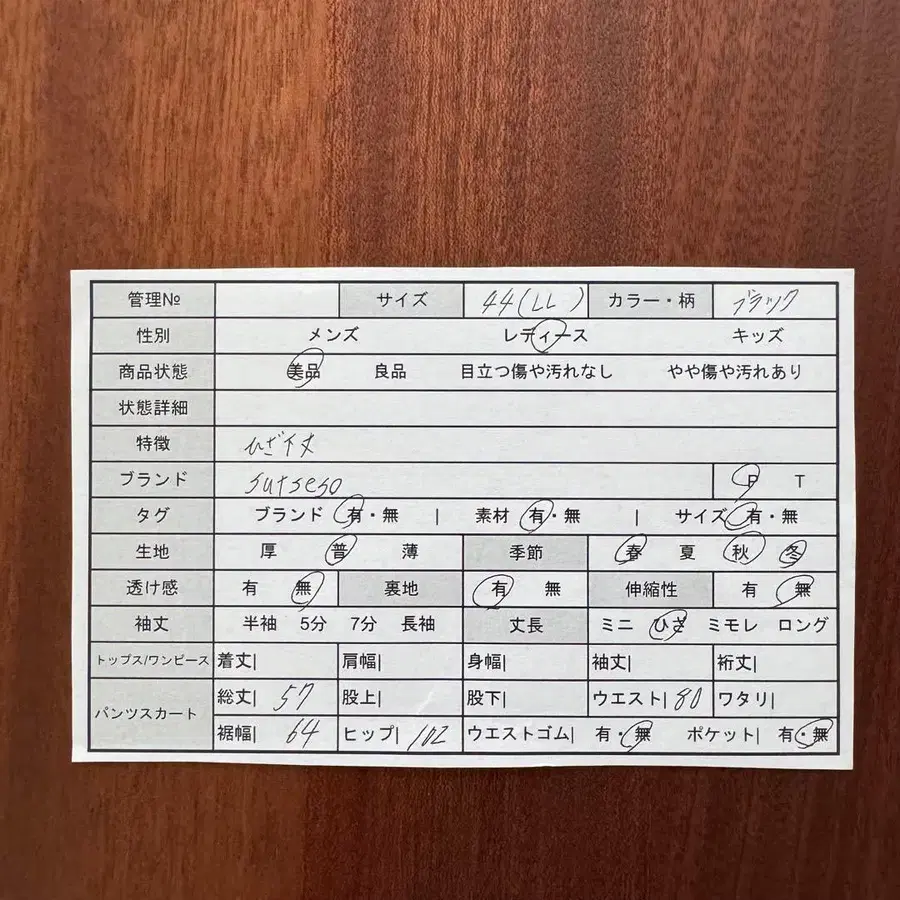 管理№ サイズ 44(LL) カラー・柄 ブラック
性別 メンズ レディース キッズ
商品状態 美品 良品 目立つ傷や汚れなし やや傷や汚れあり
状態詳細
特徴 ひざ下丈
ブランド sutseso P T
タグ ブランド 有・無 | 素材 有・無 | サイズ 有・無
生地 厚 普 薄 季節 春 夏 秋 冬
透け感 有 無 裏地 有 無 伸縮性 有 無
袖丈 半袖 5分 7分 長袖 丈長 ミニ ひざ ミモレ ロング
トップス/ワンピース 着丈| 肩幅| 身幅| 袖丈| 裄丈|
パンツスカート 総丈| 57 股上| 股下| ウエスト| 80 ワタリ|
裾幅| 64 ヒップ| 102 ウエストゴム| 有・無 ポケット| 有・無